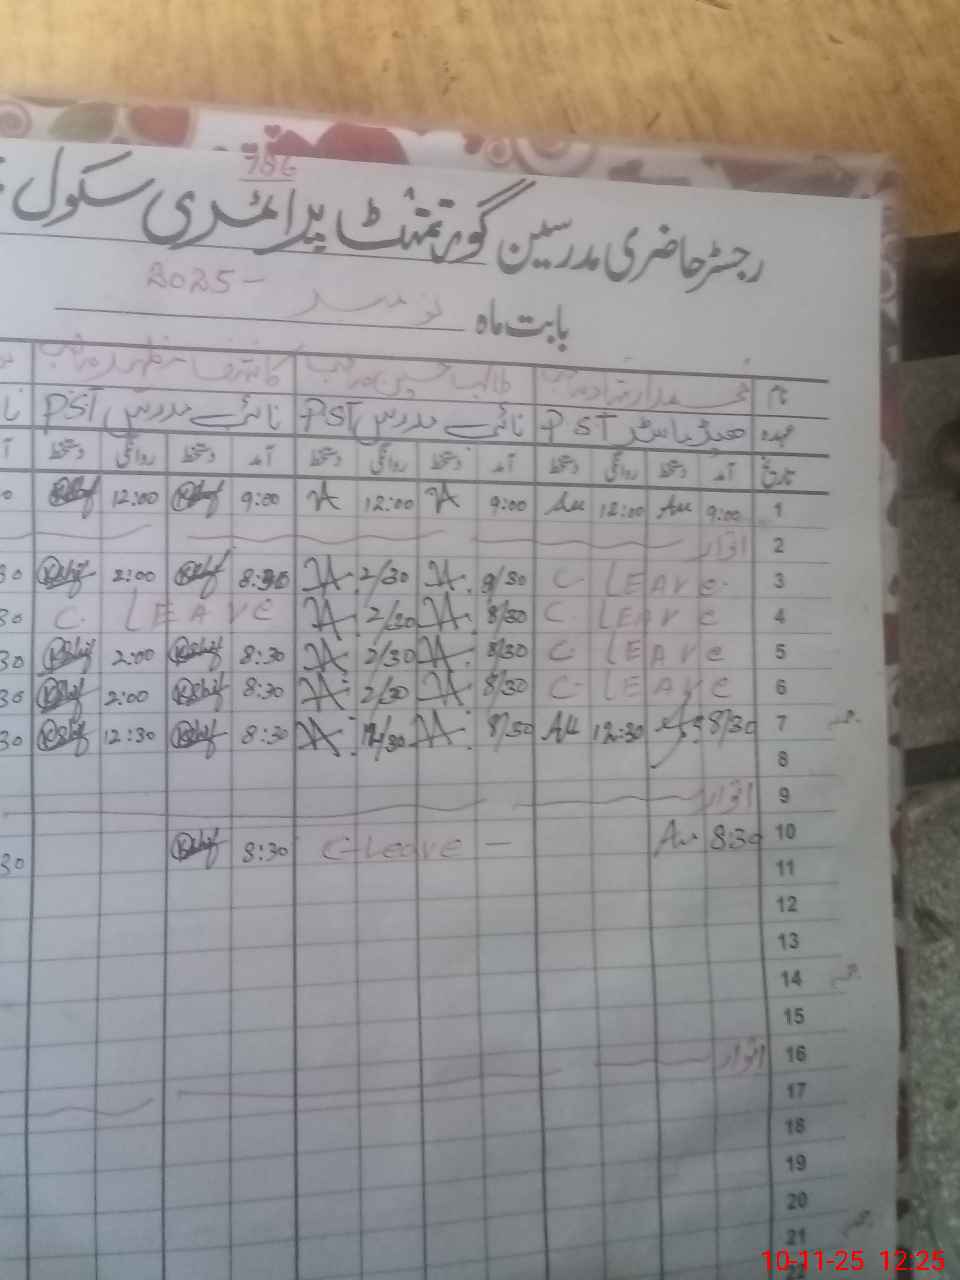 786
رجسٹر حاضری مدرسین گورنمنٹ پرائمری سکول
بابت ماہ نومبر 2025
نام محمد ارشاد صاحب طالب حسین صاحب کاشف مظہر صاحب
عہدہ ہیڈ ماسٹر PST نائب مدرس PST نائب مدرس PST
تاریخ آمد دستخط روانگی دستخط آمد دستخط روانگی دستخط آمد دستخط روانگی دستخط
1 9:00 Au 12:00 Au 9:00 12:00 9:00 Kashif 12:00 Kashif
2 اتوار
3 C. LEAVE 8/30 2/30 8:30 Kashif 2:00 Kashif 30
4 C. LEAVE 8/30 2/30 C. LEAVE 30
5 C. LEAVE 8/30 2/30 8:30 Kashif 2:00 Kashif 30
6 C. LEAVE 8/30 2/30 8:30 Kashif 2:00 Kashif 30
7 8/30 12:30 Au 8/30 12/30 8:30 Kashif 12:30 Kashif 30
8
9 اتوار
10 8:30 Au C. Leave 8:30 Kashif 30
11
12
13
14
15
16 اتوار
17
18
19
20
21
10-11-25 12:25